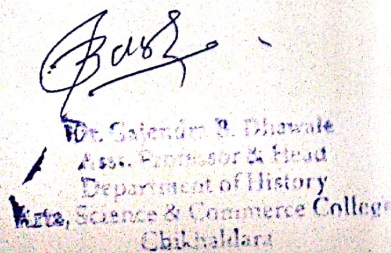 Dr. Gajendra B. Dhawale
Asst. Professor & Head
Department of History
Arts, Science & Commerce College
Chikhaldara